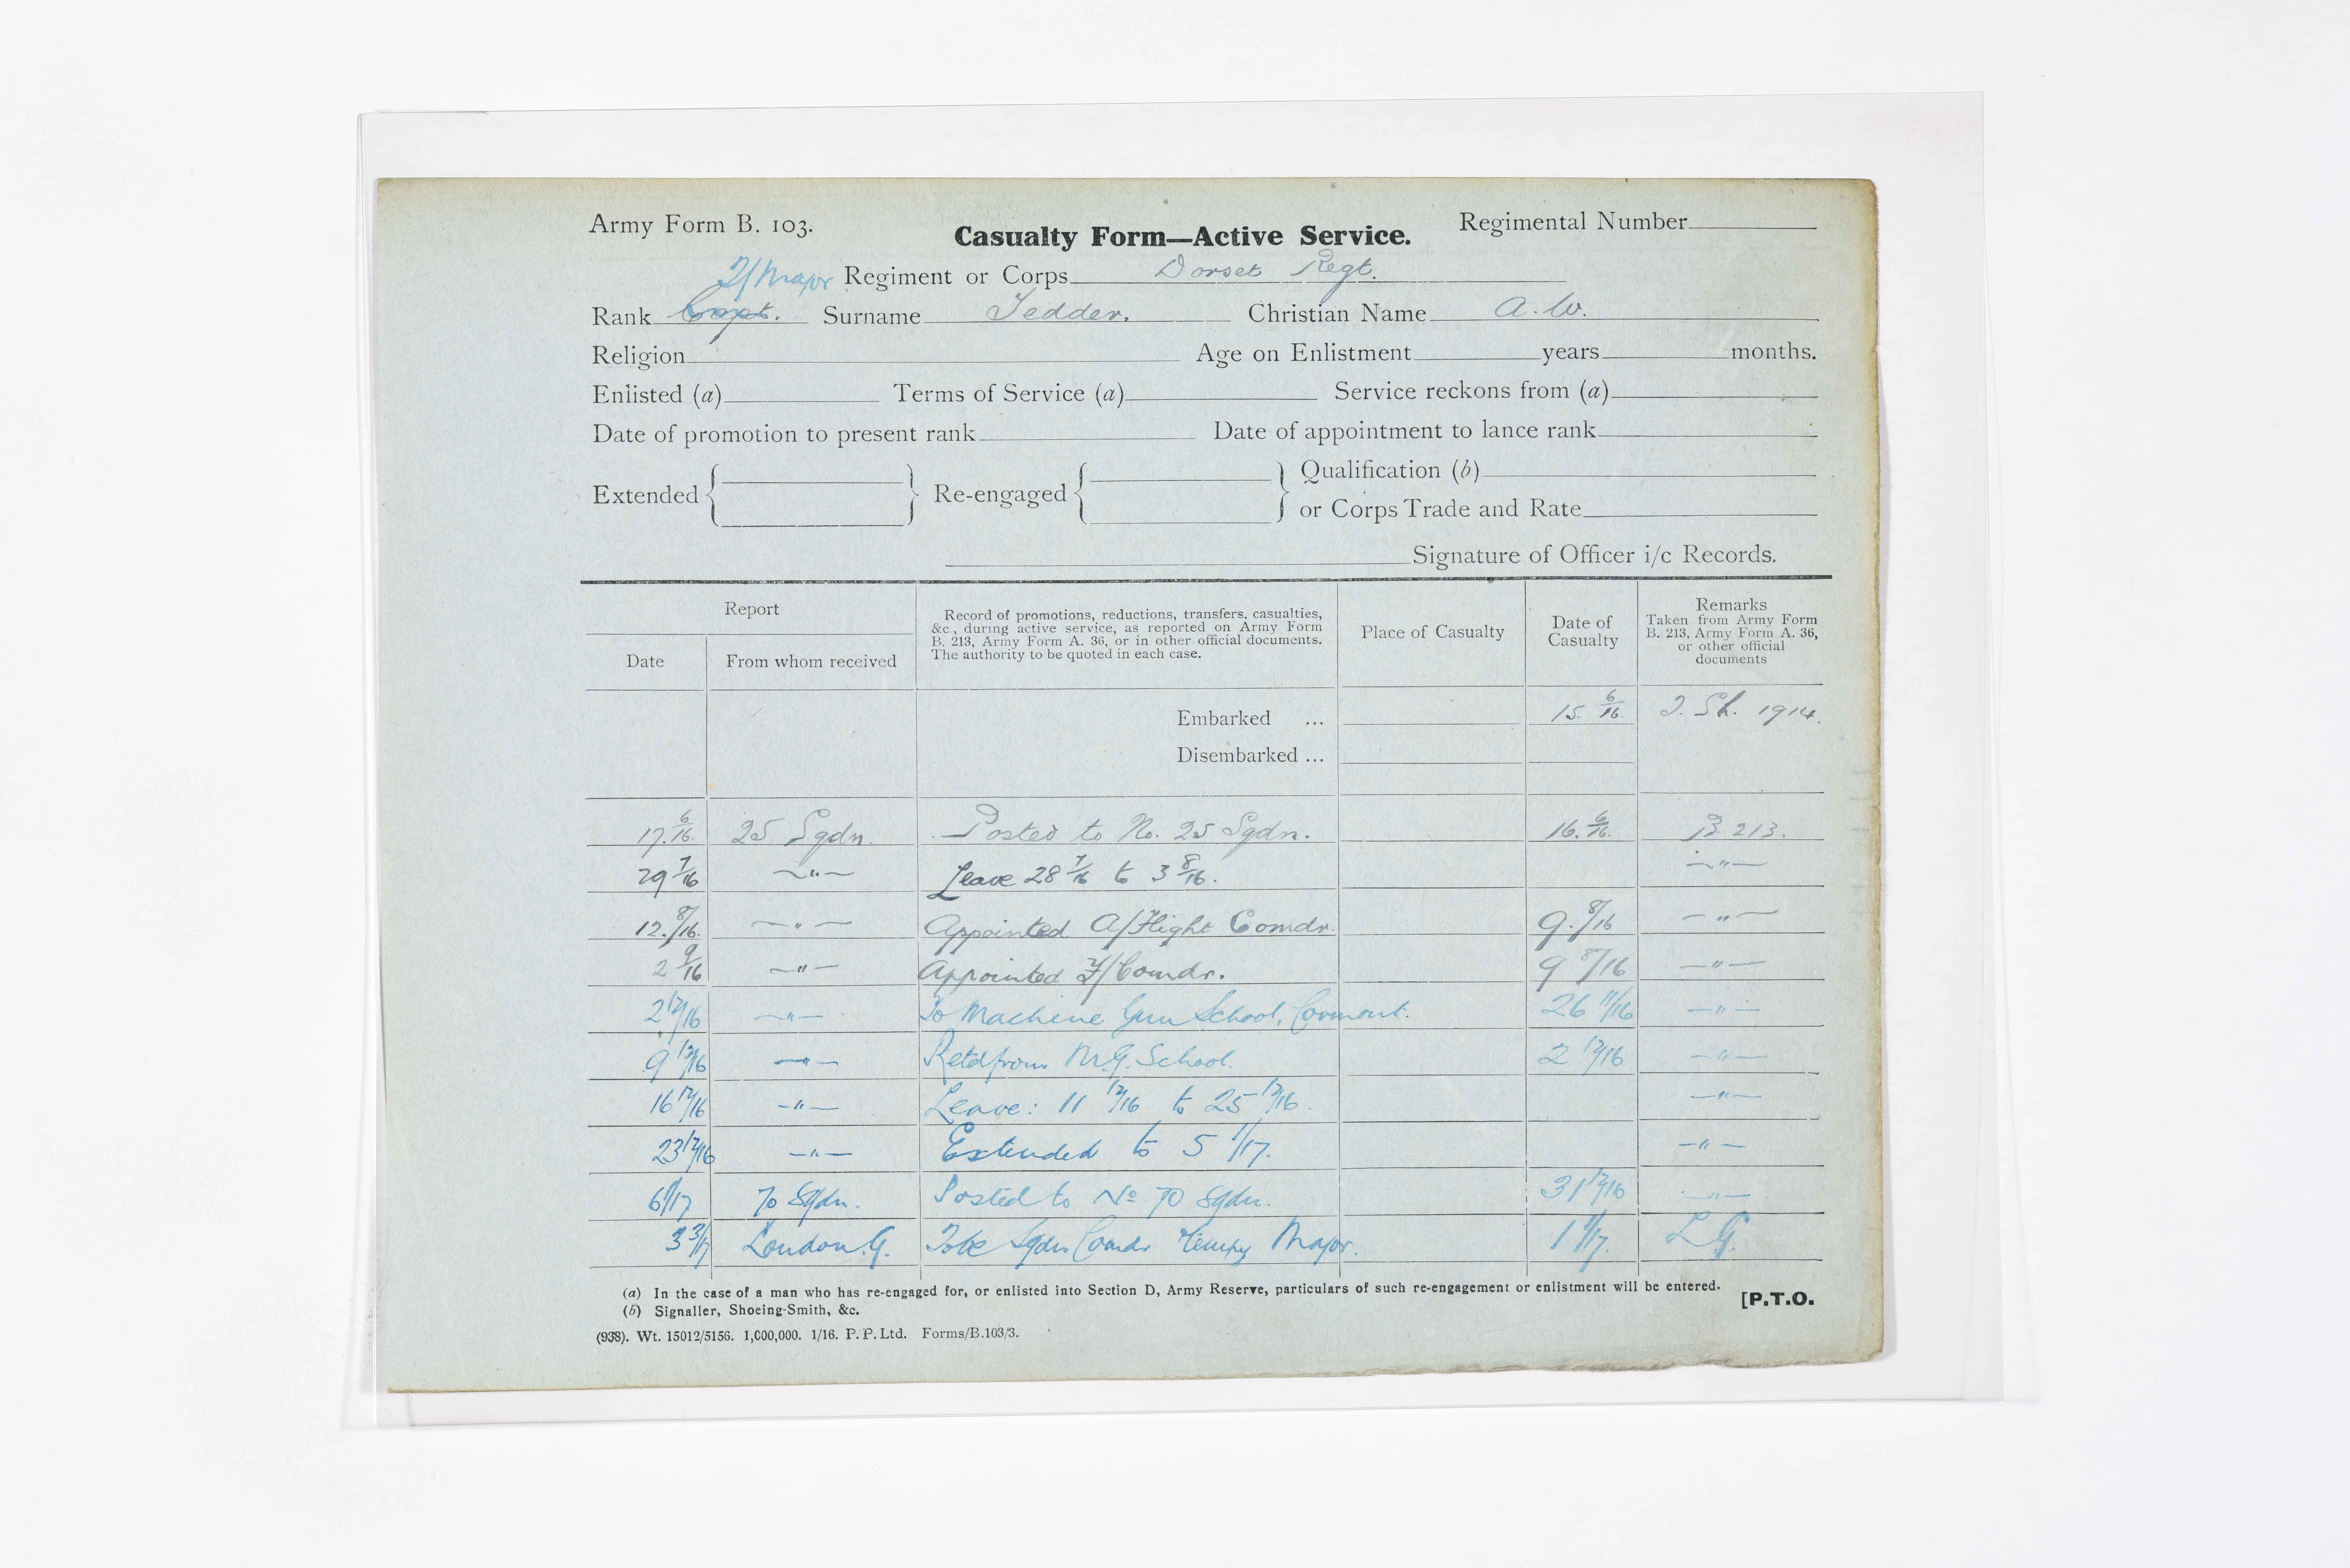 Army Form B. 103.
Casualty Form—Active Service.
Regimental Number
T/Major Regiment or Corps Dorset Regt.
Rank Capt. Surname Tedder. Christian Name A.W.
Religion Age on Enlistment years months.
Enlisted (a) Terms of Service (a) Service reckons from (a)
Date of promotion to present rank Date of appointment to lance rank
Extended { } Re-engaged { } Qualification (b)
or Corps Trade and Rate
Signature of Officer i/c Records.
Report
Date
From whom received
Record of promotions, reductions, transfers, casualties,
&c., during active service, as reported on Army Form
B. 213, Army Form A. 36, or in other official documents.
The authority to be quoted in each case.
Place of Casualty
Date of
Casualty
Remarks
Taken from Army Form
B. 213, Army Form A. 36,
or other official
documents
Embarked ... 15. 6/16. Sh. 1914.
Disembarked ...
17. 6/16. 25 Sqdn. Posted to No. 25 Sqdn. 16. 6/16. B. 213.
29 7/16 —"— Leave 28 7/16 to 3 8/16. —"—
12. 8/16. —"— Appointed A/Flight Comdr. 9. 8/16 —"—
2 9/16 —"— Appointed F/Comdr. 9 8/16 —"—
2 12/16 —"— To Machine Gun School, Cormont. 26 11/16 —"—
9 12/16 —"— Retd from M.G. School. 2 12/16 —"—
16 12/16 —"— Leave: 11 12/16 to 25 12/16. —"—
23 12/16 —"— Extended to 5 1/17. —"—
6 1/17 70 Sqdn. Posted to No 70 Sqdn. 31 12/16 —"—
3 3/17 London.G. To be Sqdn Comdr Tempy Major. 1 1/17. L.G.
(a) In the case of a man who has re-engaged for, or enlisted into Section D, Army Reserve, particulars of such re-engagement or enlistment will be entered.
(b) Signaller, Shoeing-Smith, &c.
[P.T.O.
(938). Wt. 15012/5156. 1,000,000. 1/16. P. P. Ltd. Forms/B.103/3.